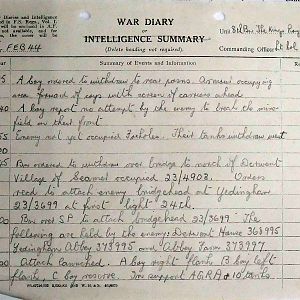 WAR DIARY
or
INTELLIGENCE SUMMARY
(Delete heading not required).
in F.S. Regs., Vol. I.
Unit 8th Bn. The Kings
Commanding Officer Lt Col
FEB 44
Summary of Events and Information
A Coy ordered to withdraw to rear posns. Enemy occupying
area forward of coys with screen of carriers ahead
A Coy report no attempt by the enemy to breach the mine-
field on their front
Enemy not yet occupied Foxholes. Their tanks withdrew west
Bn ordered to withdraw over bridge to north of Derwent
Village of Seamer occupied 23/4903. Orders
recd to attach enemy bridgehead at Yedingham
23/3699 at first light 24th.
Bn over SP to attach bridgehead 23/3699 The
following are held by the enemy: Derwent House 368995
Yedingham Abbey 373995 and Abbey Farm 373997
Attack launched. A Coy right flank B Coy left
flank, C Coy reserve. In support AGRA + 10 tanks.